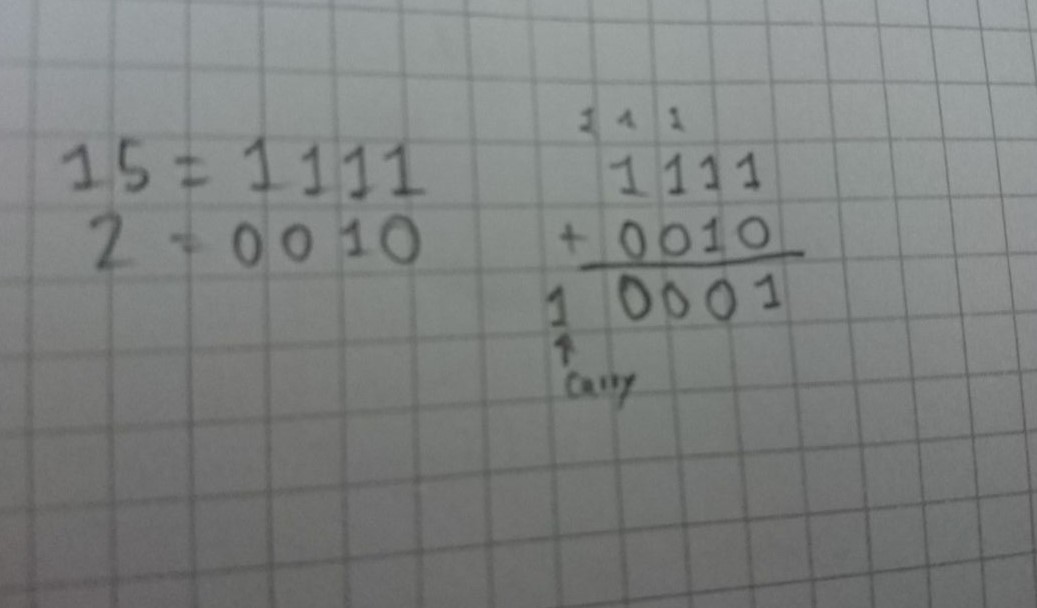 15 = 1111
2 = 0010
1 1 1
1111
+ 0010
1 0001
↑
Carry